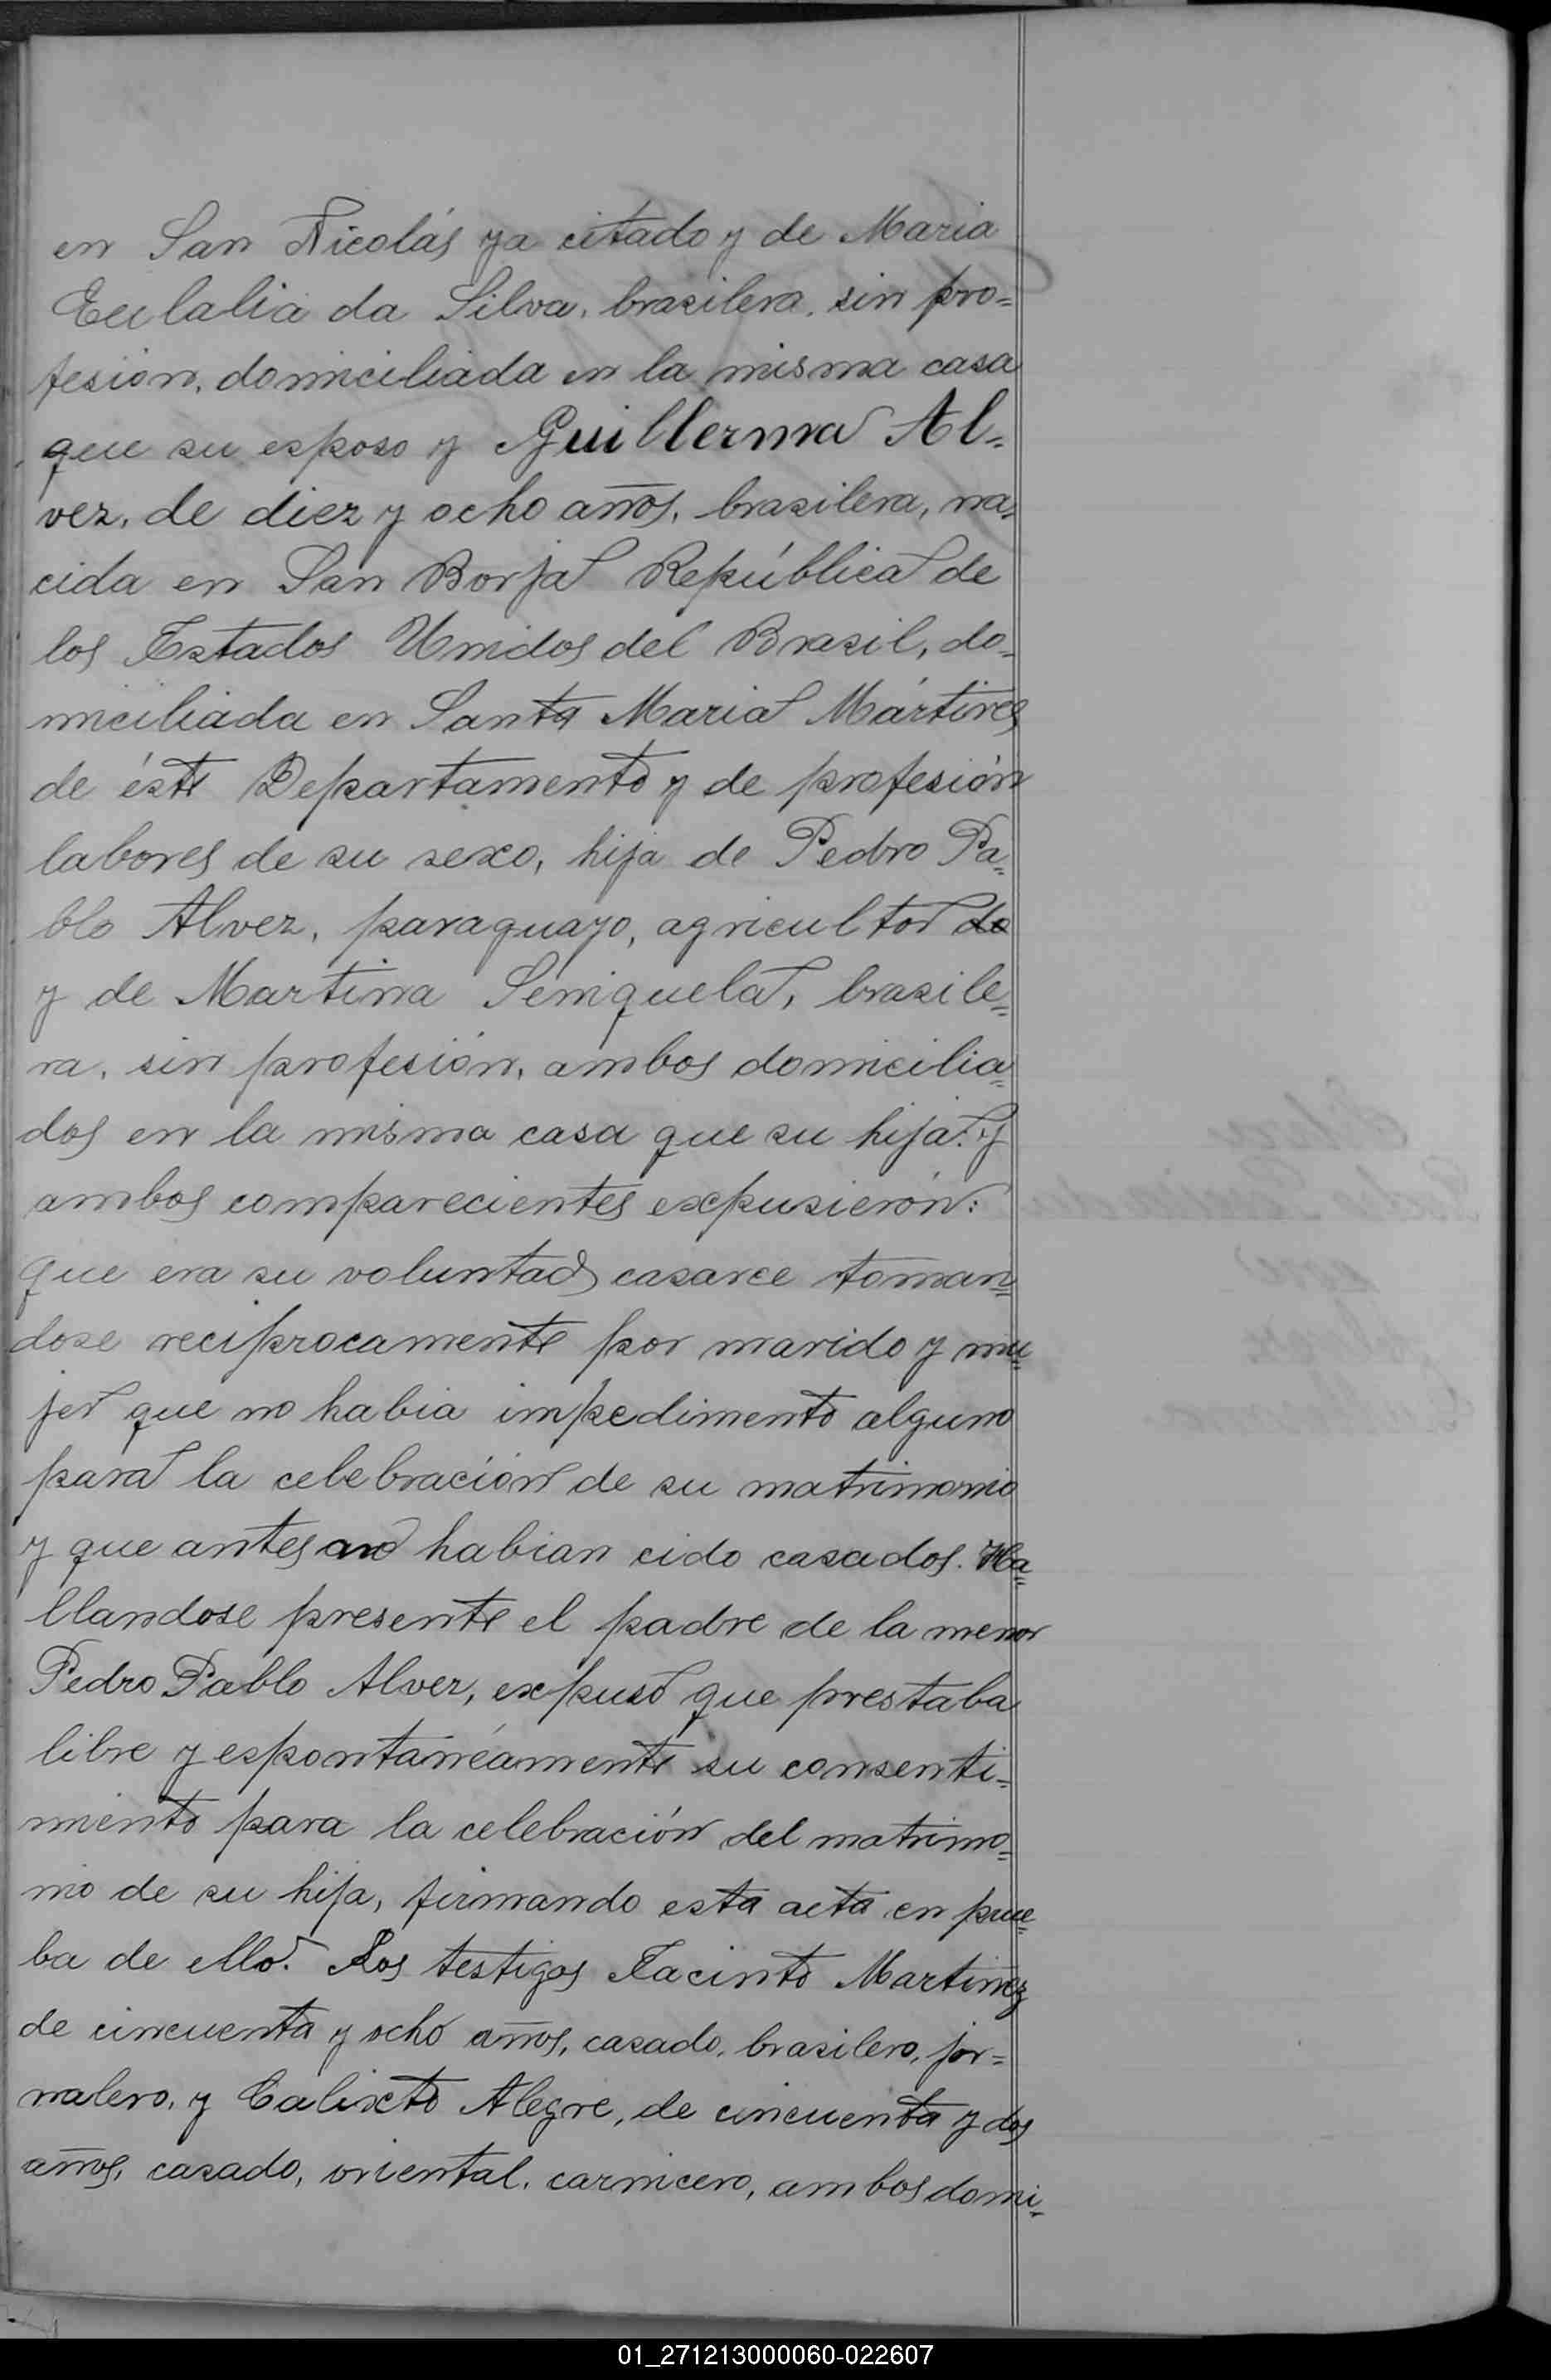 en San Nicolás ya citado y de Maria
Eulalia da Silva, brasilera, sin pro=
fesion, domiciliada en la misma casa
que su esposo y Guillerma Al=
vez, de diez y ocho años, brasilera, na=
cida en San Borja República de
los Estados Unidos del Brasil, do=
miciliada en Santa Maria Mártires
de éste Departamento y de profesión
labores de su sexo, hija de Pedro Pa=
blo Alvez, paraguayo, agricultor do
y de Martina Seniquela, brasile=
ra, sin profesión, ambos domicilia=
dos en la misma casa que su hija. y
ambos comparecientes expusierón:
que era su voluntad casarce toman=
dose reciprocamente por marido y mu=
jer que no habia impedimento alguno
para la celebración de su matrimonio
y que antes no habian cido casados. Ha=
llandose presente el padre de la menor
Pedro Pablo Alvez, expuso que prestaba
libre y espontanéamente su consenti=
miento para la celebración del matrimo=
nio de su hija, firmando esta acta en prue=
ba de ello. Los testigos Jacinto Martinez
de cincuenta y ocho años, casado, brasilero, jor=
nalero, y Calixto Alegre, de cincuenta y dos
años, casado, oriental, carnicero, ambos domi=
01_271213000060-022607